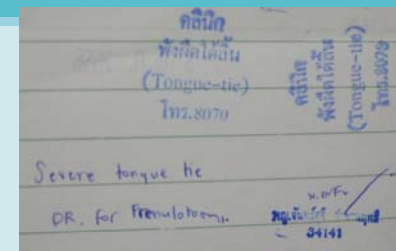 คลินิก
พังผืดใต้ลิ้น
(Tongue-tie)
โทร.8070
คลินิก
พังผืดใต้ลิ้น
(Tongue-tie)
โทร.8070
Severe tongue tie
DR. for
34141